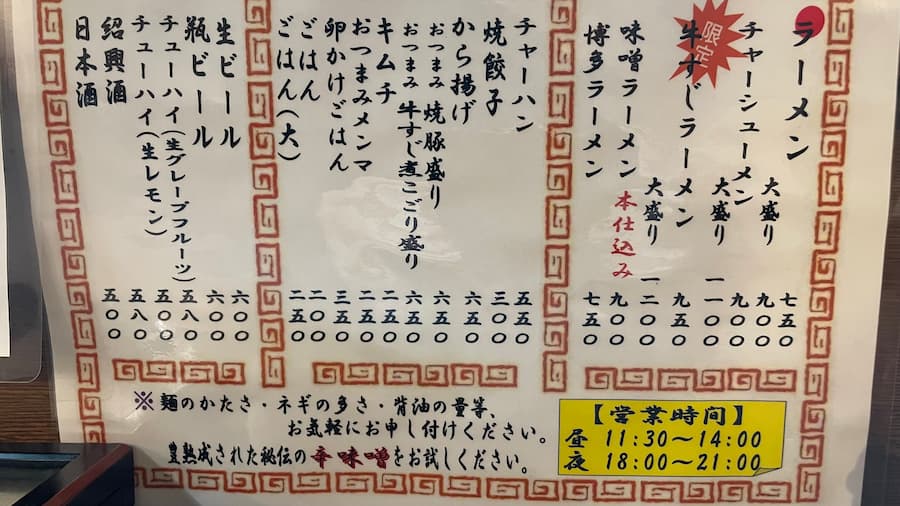 ラーメン 七五〇
大盛り 九〇〇
チャーシューメン 九〇〇
大盛り 一一〇〇
限定
牛すじラーメン 九五〇
大盛り 一二〇〇
味噌ラーメン 本仕込み 九〇〇
博多ラーメン 七五〇
チャーハン 五五〇
焼餃子 三〇〇
から揚げ 六五〇
おつまみ 焼豚盛り 六五〇
おつまみ 牛すじ煮こごり盛り 六五〇
キムチ 二五〇
おつまみメンマ 二五〇
卵かけごはん 三五〇
ごはん 二〇〇
ごはん(大) 二五〇
生ビール 六〇〇
瓶ビール 六〇〇
チューハイ(生グレープフルーツ) 五八〇
チューハイ(生レモン) 五〇〇
紹興酒 五八〇
日本酒 五〇〇
※麺のかたさ・ネギの多さ・背油の量等、
お気軽にお申し付けください。
豊熟成された秘伝の辛味噌をお試しください。
【営業時間】
昼 11:30～14:00
夜 18:00～21:00